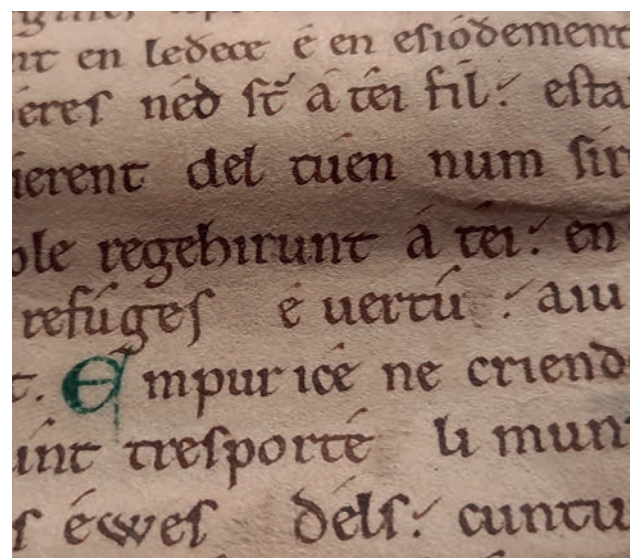 nt en ledece é en esiódement
éres néd st̄ á téi fil: esta
ierent del tuen num sir
ble regehirunt á téi: en
refúges é uertú : aiu
t. Empur icé ne criend
int tresporté li mun
s éwes déls: cuntu